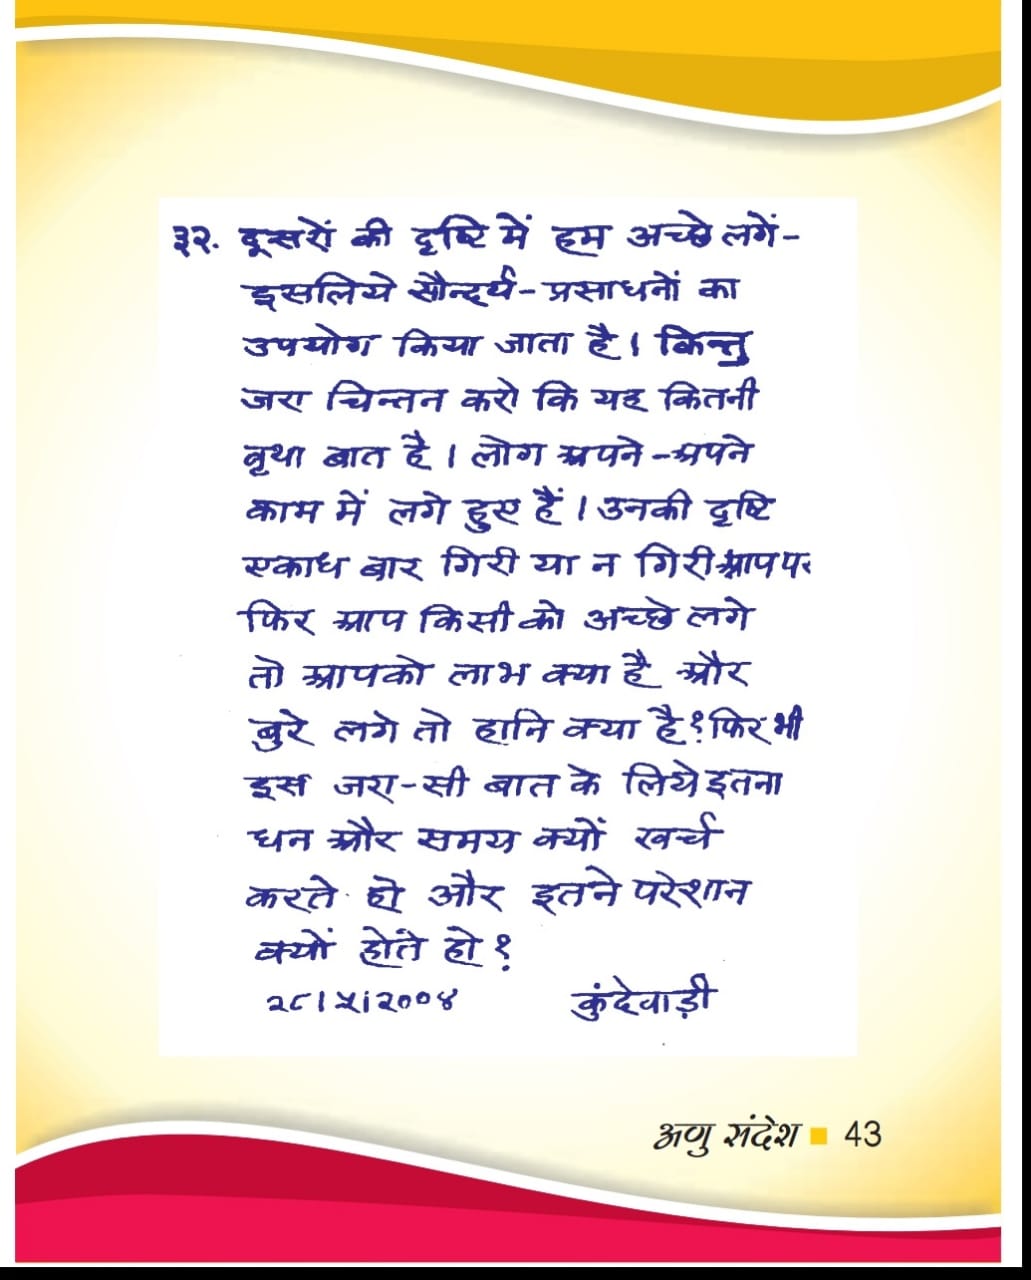 ३२. दूसरों की दृष्टि में हम अच्छे लगें-
इसलिये सौन्दर्य-प्रसाधनों का
उपयोग किया जाता है। किन्तु
जरा चिन्तन करो कि यह कितनी
वृथा बात है। लोग अपने-अपने
काम में लगे हुए हैं। उनकी दृष्टि
एकाध बार गिरी या न गिरी आप पर
फिर आप किसी को अच्छे लगे
तो आपको लाभ क्या है और
बुरे लगे तो हानि क्या है? फिर भी
इस जरा-सी बात के लिये इतना
धन और समय क्यों खर्च
करते हो और इतने परेशान
क्यों होते हो?
२८।५।२००४ कुंदेवाड़ी
अणु संदेश ■ 43